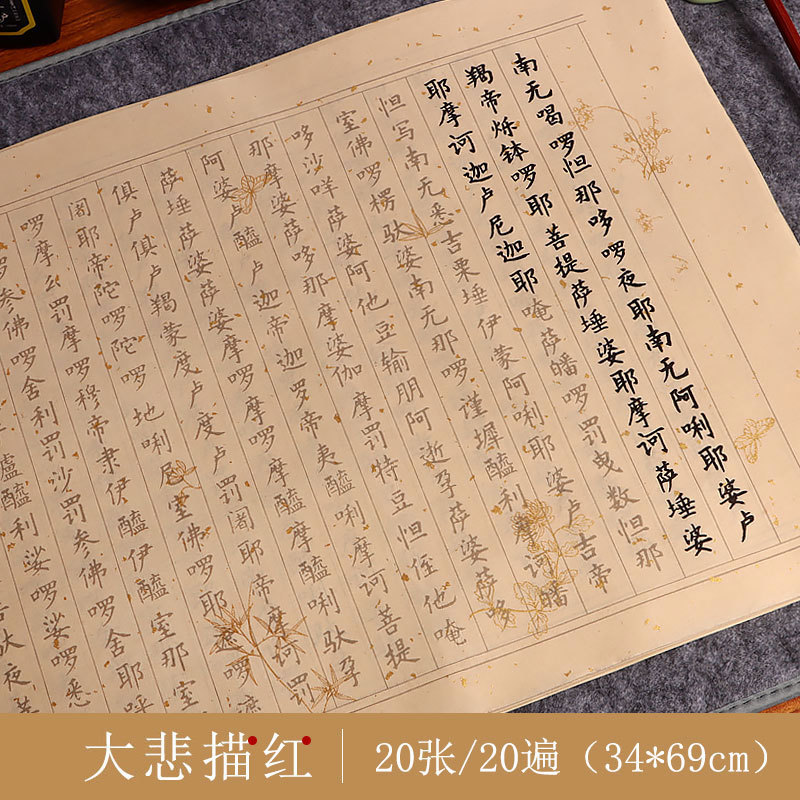 南无喝啰怛那哆啰夜耶南无阿唎耶婆卢
羯帝烁钵啰耶菩提萨埵婆耶摩诃萨埵婆
耶摩诃迦卢尼迦耶唵萨皤啰罚曳数怛那
怛写南无悉吉栗埵伊蒙阿唎耶婆卢吉帝
室佛啰楞驮婆南无那啰谨墀醯利摩诃皤
哆沙咩萨婆阿他豆输朋阿逝孕萨婆萨哆
那摩婆萨哆那摩婆伽摩罚特豆怛侄他唵
阿婆卢醯卢迦帝迦罗帝夷醯唎摩诃菩提
萨埵萨婆萨婆摩啰摩啰摩醯摩醯唎驮孕
俱卢俱卢羯蒙度卢度卢罚阇耶帝摩诃罚
阇耶帝陀啰陀啰地唎尼室佛啰耶遮啰遮
啰摩么罚摩啰穆帝隶伊醯伊醯室那室
参佛啰舍利罚沙罚参佛啰舍耶呼
醯利娑啰娑啰悉
驮夜
大悲描红
20张/20遍（34*69cm）